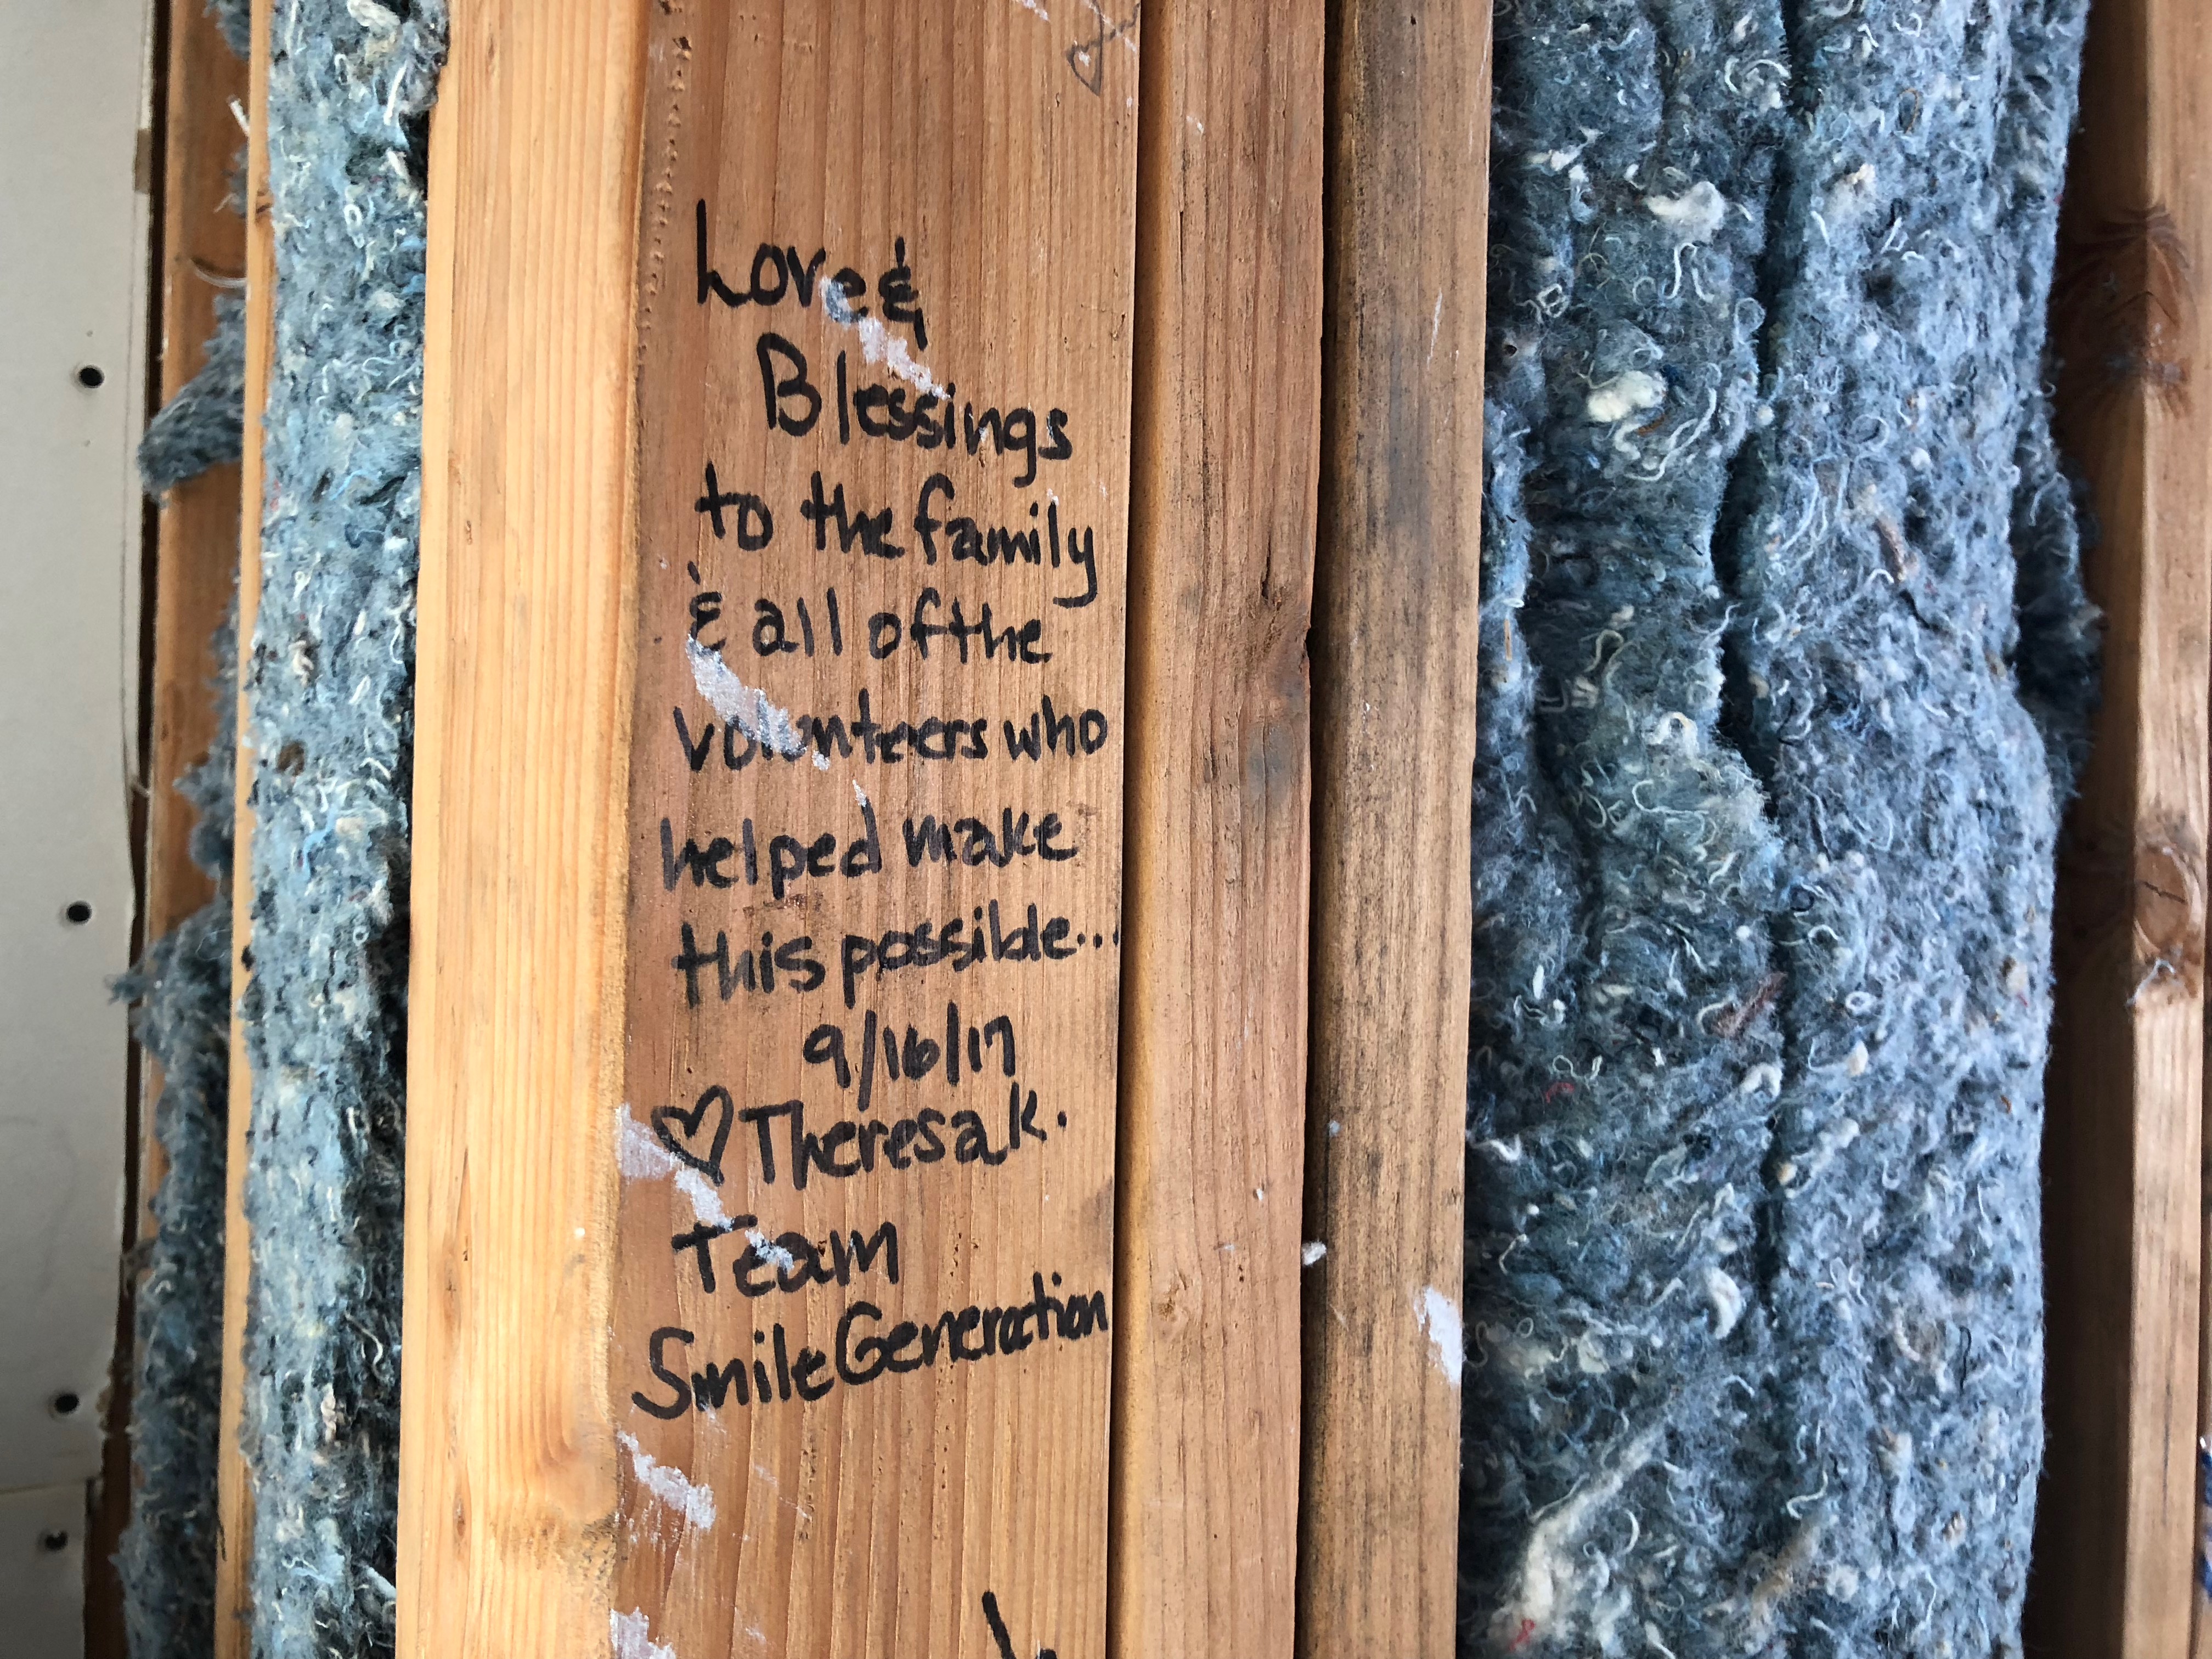 Love &
Blessings
to the family
& all of the
volunteers who
helped make
this possible...
9/16/17
♡ Theresa K.
Team
Smile Generation